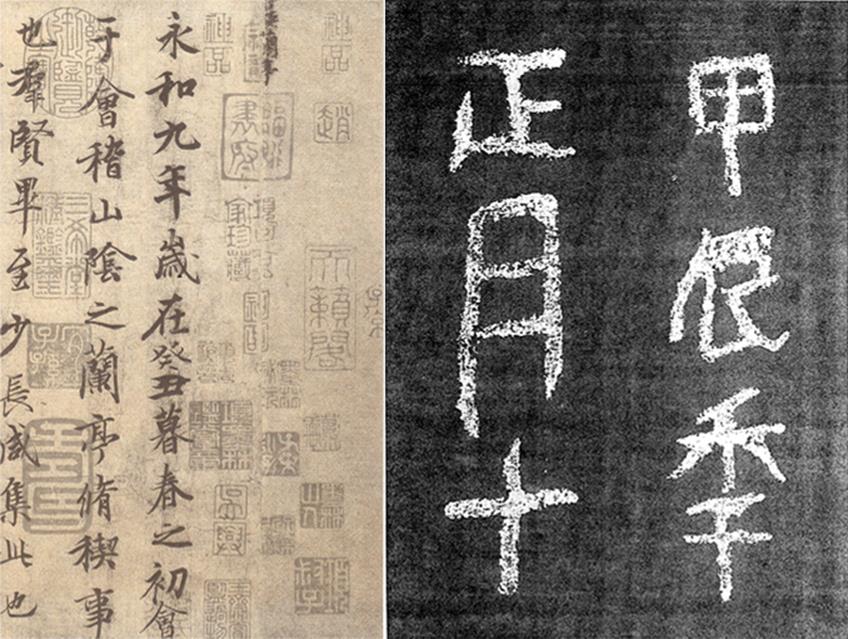 神品
趙
天籟閣
神品
永和九年歲在癸丑暮春之初會
于會稽山陰之蘭亭脩稧事
也羣賢畢至少長咸集此地
甲辰秊
正月十